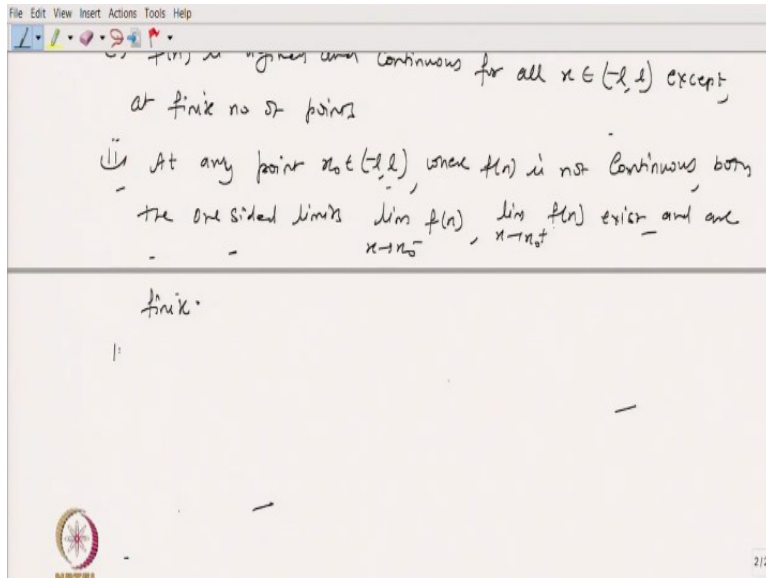 File Edit View Insert Actions Tools Help
f(x) is defined and Continuous for all x ∈ (-l, l) except
at finite no of points
(ii) At any point x₀ ∈ (-l, l), where f(x) is not Continuous both
the one sided limits lim x→x₀⁻ f(x), lim x→x₀⁺ f(x) exist and are
finite.
2/2
NPTEL